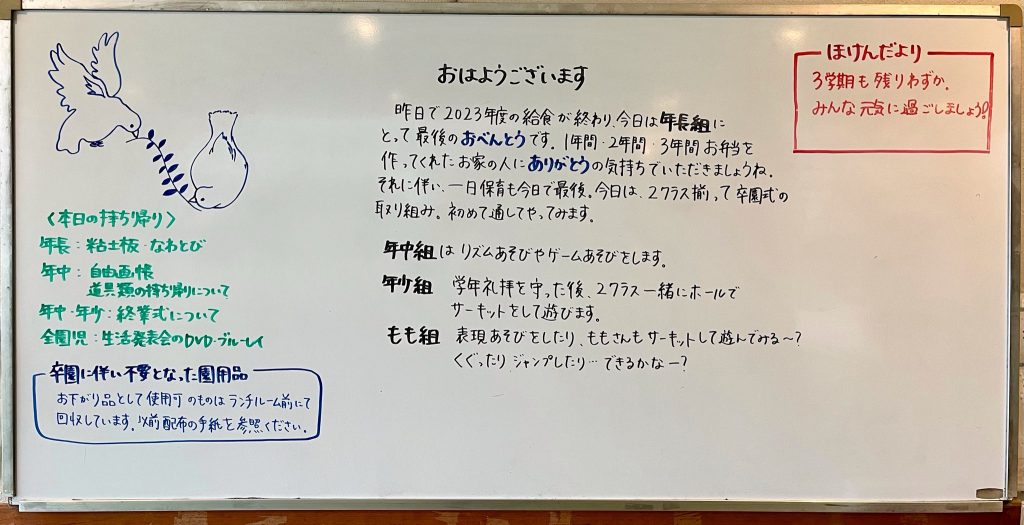 おはようございます
昨日で2023年度の給食が終わり、今日は年長組に
とって最後のおべんとうです。1年間・2年間・3年間お弁当を
作ってくれたお家の人にありがとうの気持ちでいただきましょうね。
それに伴い、一日保育も今日で最後。今日は、2クラス揃って卒園式の
取り組み。初めて通してやってみます。
年中組はリズムあそびやゲームあそびをします。
年少組 学年礼拝を守った後、2クラス一緒にホールで
サーキットをして遊びます。
もも組 表現あそびをしたり、ももさんもサーキットして遊んでみる〜?
くぐったりジャンプしたり…できるかなー?
ほけんだより
3学期も残りわずか。
みんな元気に過ごしましょう!
〈本日の持ち帰り〉
年長：粘土板・なわとび
年中：自由画帳
道具類の持ち帰りについて
年中・年少：終業式について
全園児：生活発表会のDVD・ブルーレイ
卒園に伴い不要となった園用品
お下がり品として使用可のものはランチルーム前にて
回収しています。以前配布の手紙を参照ください。